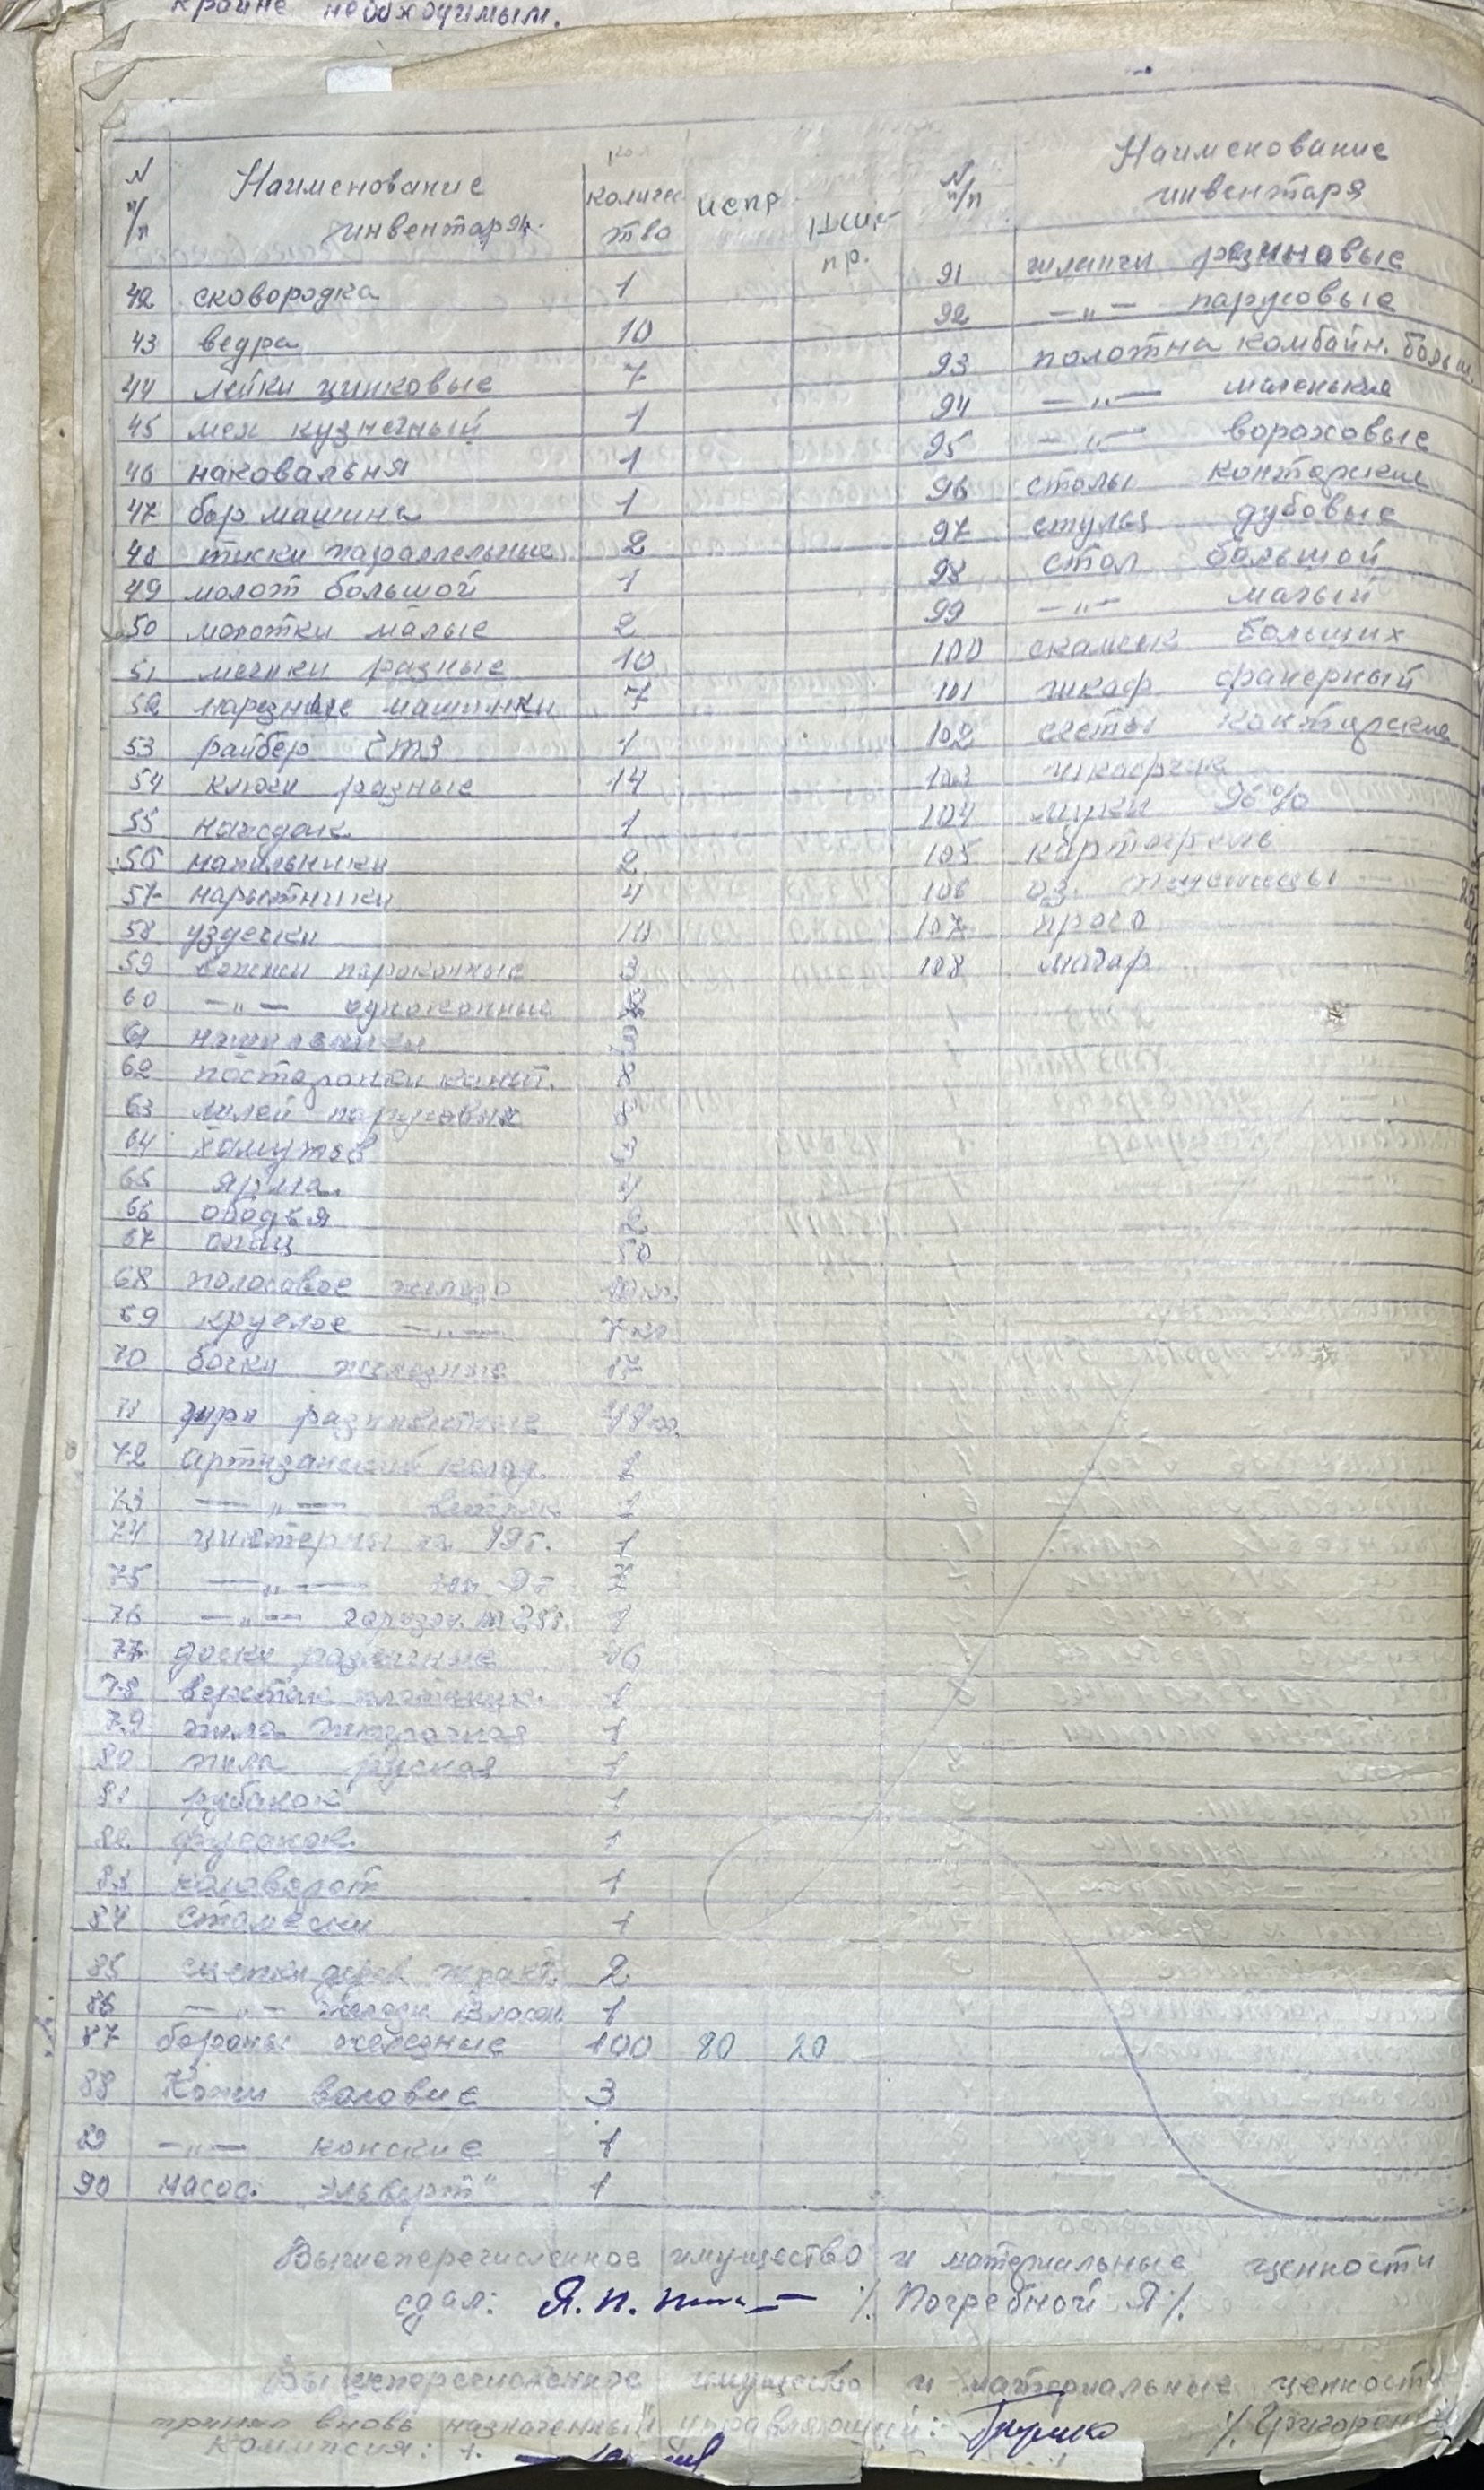 крайне необходимым.
N п/п Наименование инвентаря количество испр неиспр. N п/п Наименование инвентаря
42 сковородка 1 91 шланги резиновые
43 ведра 10 92 —"— парусовые
44 лейки цинковые 7 93 полотна комбайн. больш.
45 мех кузнечный 1 94 —"— маленькие
46 наковальня 1 95 —"— вороховые
47 бор машина 1 96 столы контарские
48 тиски параллельные 2 97 стулья дубовые
49 молот большой 1 98 стол большой
50 молотки малые 2 99 —"— малый
51 мечики разные 10 100 скамеек больших
52 нарезные машинки 7 101 шкаф фанерный
53 райбер ЧТЗ 1 102 счеты контарские
54 ключи разные 14 103 шкафчик
55 наждак 1 104 муки 96%
56 напильники 2 105 картофель
57 нарытники 4 106 оз. пшеницы
58 уздечки 107 просо
59 вожжи пароконные 3 108 могар
60 —"— одноконные
61 нашильники
62 посторонки канат.
63 шлей парусовых
64 хамутов
65 ярма
66 ободья
67 спиц 50
68 полосовое железо
69 круглое —"— 7 кг
70 бочки железные 17
71 гири разновестные
72 артизанский колод.
73 —"—
74 цистерны на 19т. 1
75 —"— на 9т
76 —"— горизон. на 25т. 1
77 доски различные 16
78 верстак плотницк. 1
79 пила поперечная 1
80 пила русская 1
81 рубанок 1
82 фуганок. 1
83 коловорот 1
84 стамески 1
85 сцепки дерев. тракт. 2
86 —"— 1
87 бороны железные 100 80 20
88 Кожи воловие 3
89 —"— конские 1
90 насос. „Эльворт" 1
Вышеперечисленное имущество и материальные ценности
сдал: Я. П. /. Погребной Я /.
Вышеперечисленное имущество и материальные ценности
принял вновь назначенный управляющий:
Комиссия: 1.